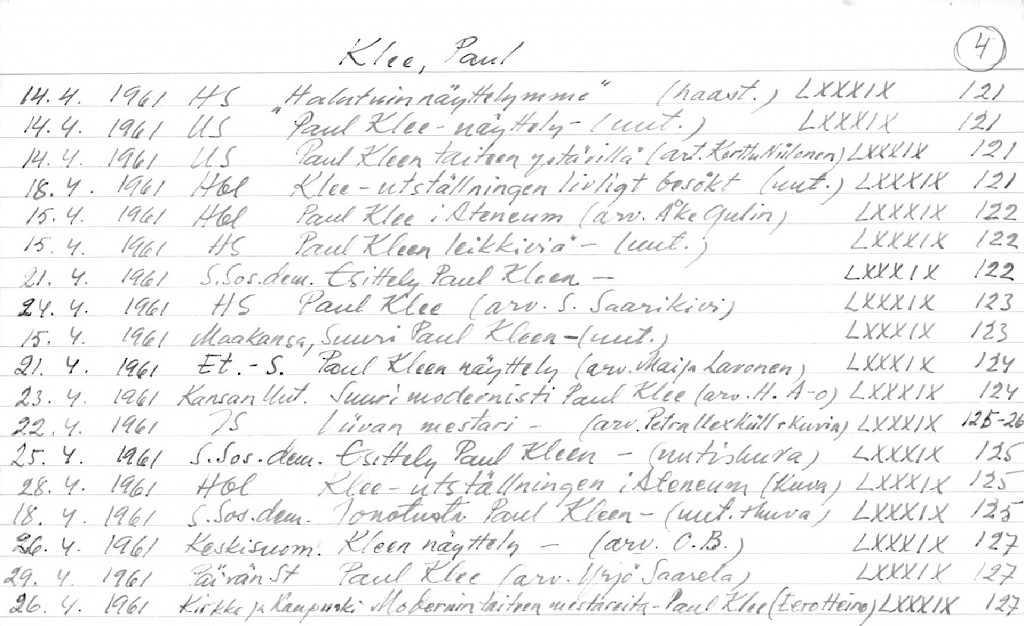 Klee, Paul 4
14.4. 1961 HS "Halutuin näyttelymme" (haast.) LXXXIX 121
14.4. 1961 US Paul Klee - näyttely - (uut.) LXXXIX 121
14.4. 1961 US Paul Kleen taiteen ystävillä (art. Kerttu Niilonen) LXXXIX 121
18.4. 1961 Hbl Klee - utställningen livligt besökt (uut.) LXXXIX 121
15.4. 1961 Hbl Paul Klee i Ateneum (arv. Åke Gulin) LXXXIX 122
15.4. 1961 HS Paul Kleen leikkiviä - (uut.) LXXXIX 122
21.4. 1961 S.Sos.dem. Esittely Paul Kleen - LXXXIX 122
24.4. 1961 HS Paul Klee (arv. S. Saarikivi) LXXXIX 123
15.4. 1961 Maakansa, Suuri Paul Kleen - (uut.) LXXXIX 123
21.4. 1961 Et.-S. Paul Kleen näyttely (arv. Maija Lavonen) LXXXIX 124
23.4. 1961 Kansan Uut. Suuri modernisti Paul Klee (arv. H. A-o) LXXXIX 124
22.4. 1961 Viivan mestari - (arv. Petra Uexküll + kuvia) LXXXIX 125-26
25.4. 1961 S.Sos.dem. Esittely Paul Kleen - (uutiskuva) LXXXIX 125
28.4. 1961 Hbl Klee - utställningen i Ateneum (kuva) LXXXIX 125
18.4. 1961 S.Sos.dem. Jonotusta Paul Kleen - (uut. + kuva) LXXXIX 125
26.4. 1961 Keskisuom. Kleen näyttely - (arv. O.B.) LXXXIX 127
29.4. 1961 Päivän St Paul Klee (arv. Yrjö Saarela) LXXXIX 127
26.4. 1961 Kirkko ja Kaupunki Modernin taiteen mestareita - Paul Klee (Eero Heino) LXXXIX 127